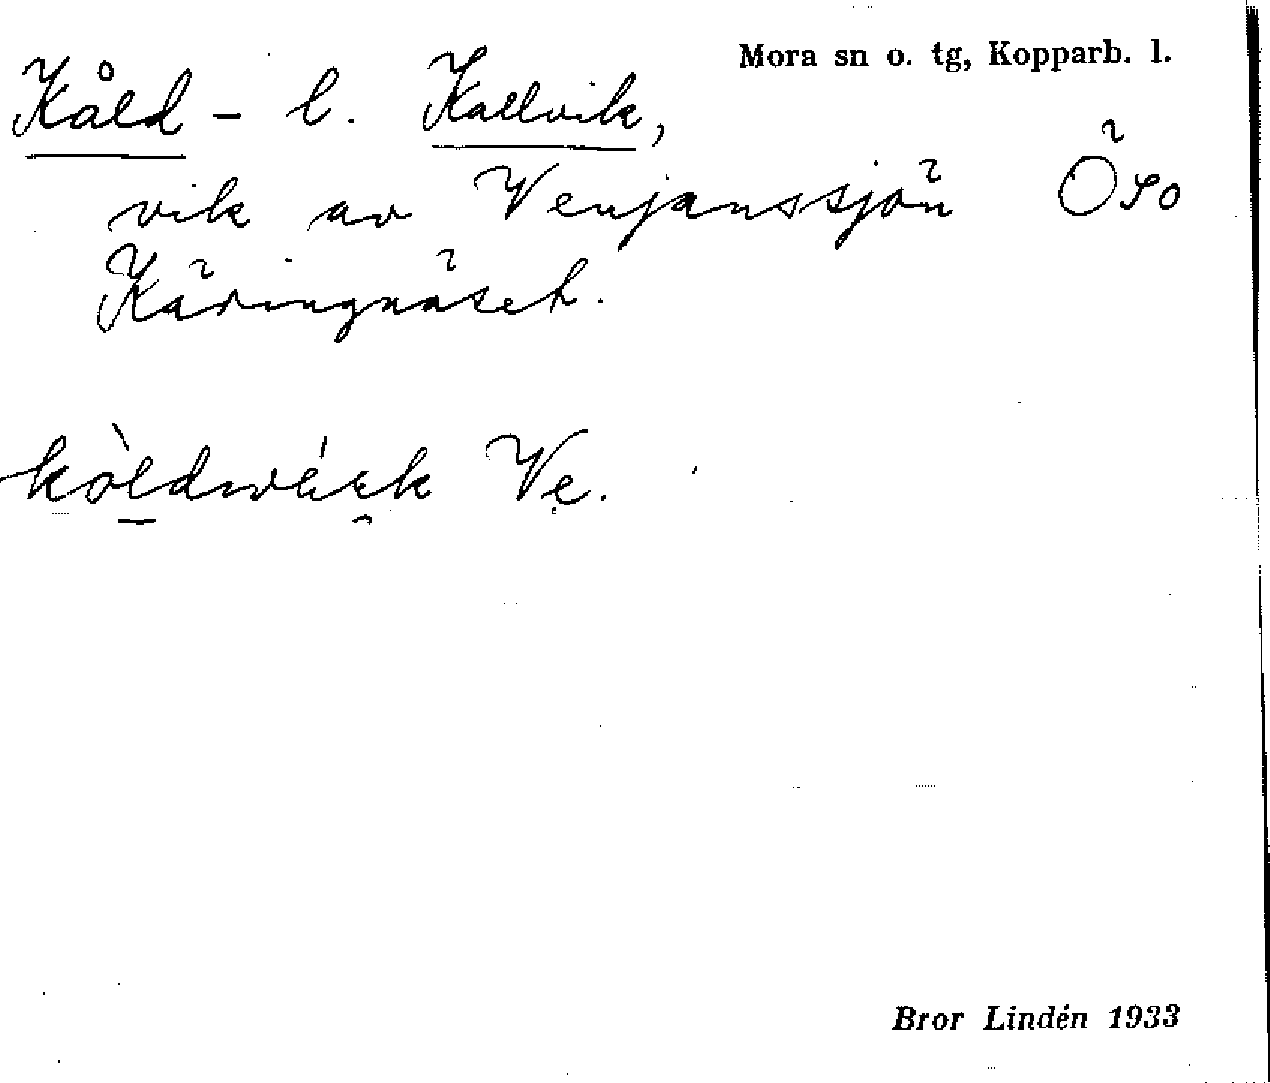 Mora sn o. tg, Kopparb. l.
Kåld- l. Kallvik,
vik av Venjanssjön ÖSO
Käringnäset.
kòldwikk Ve.
Bror Lindén 1933